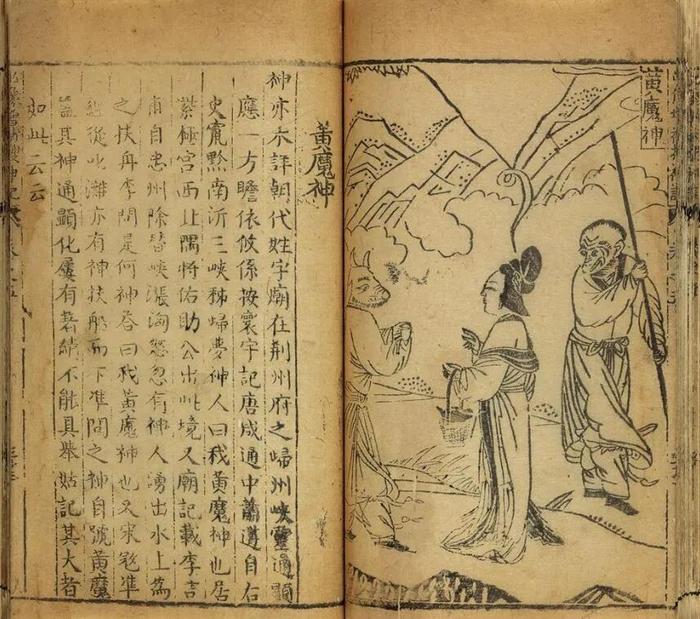 黃魔神
黃魔神
神亦未詳朝代姓字廟在荆州府之歸州峽靈通顯
應一方瞻依攸係按寰宇記唐咸通中蕭遘自右
史竄黔南泝三峽秭歸夢神人曰我黃魔神也居
紫極宮西北隅將佑助公出此境又廟記載李吉
甫自忠州除替峽漲洶怒忽有神人湧出水上爲
之扶舟李問是何神荅曰我黃魔神也又宋寇準
經從叱灘亦有神扶船而下準問之神自號黃魔
盖其神通顯化屢有著績不能具舉姑記其大者
如此云云